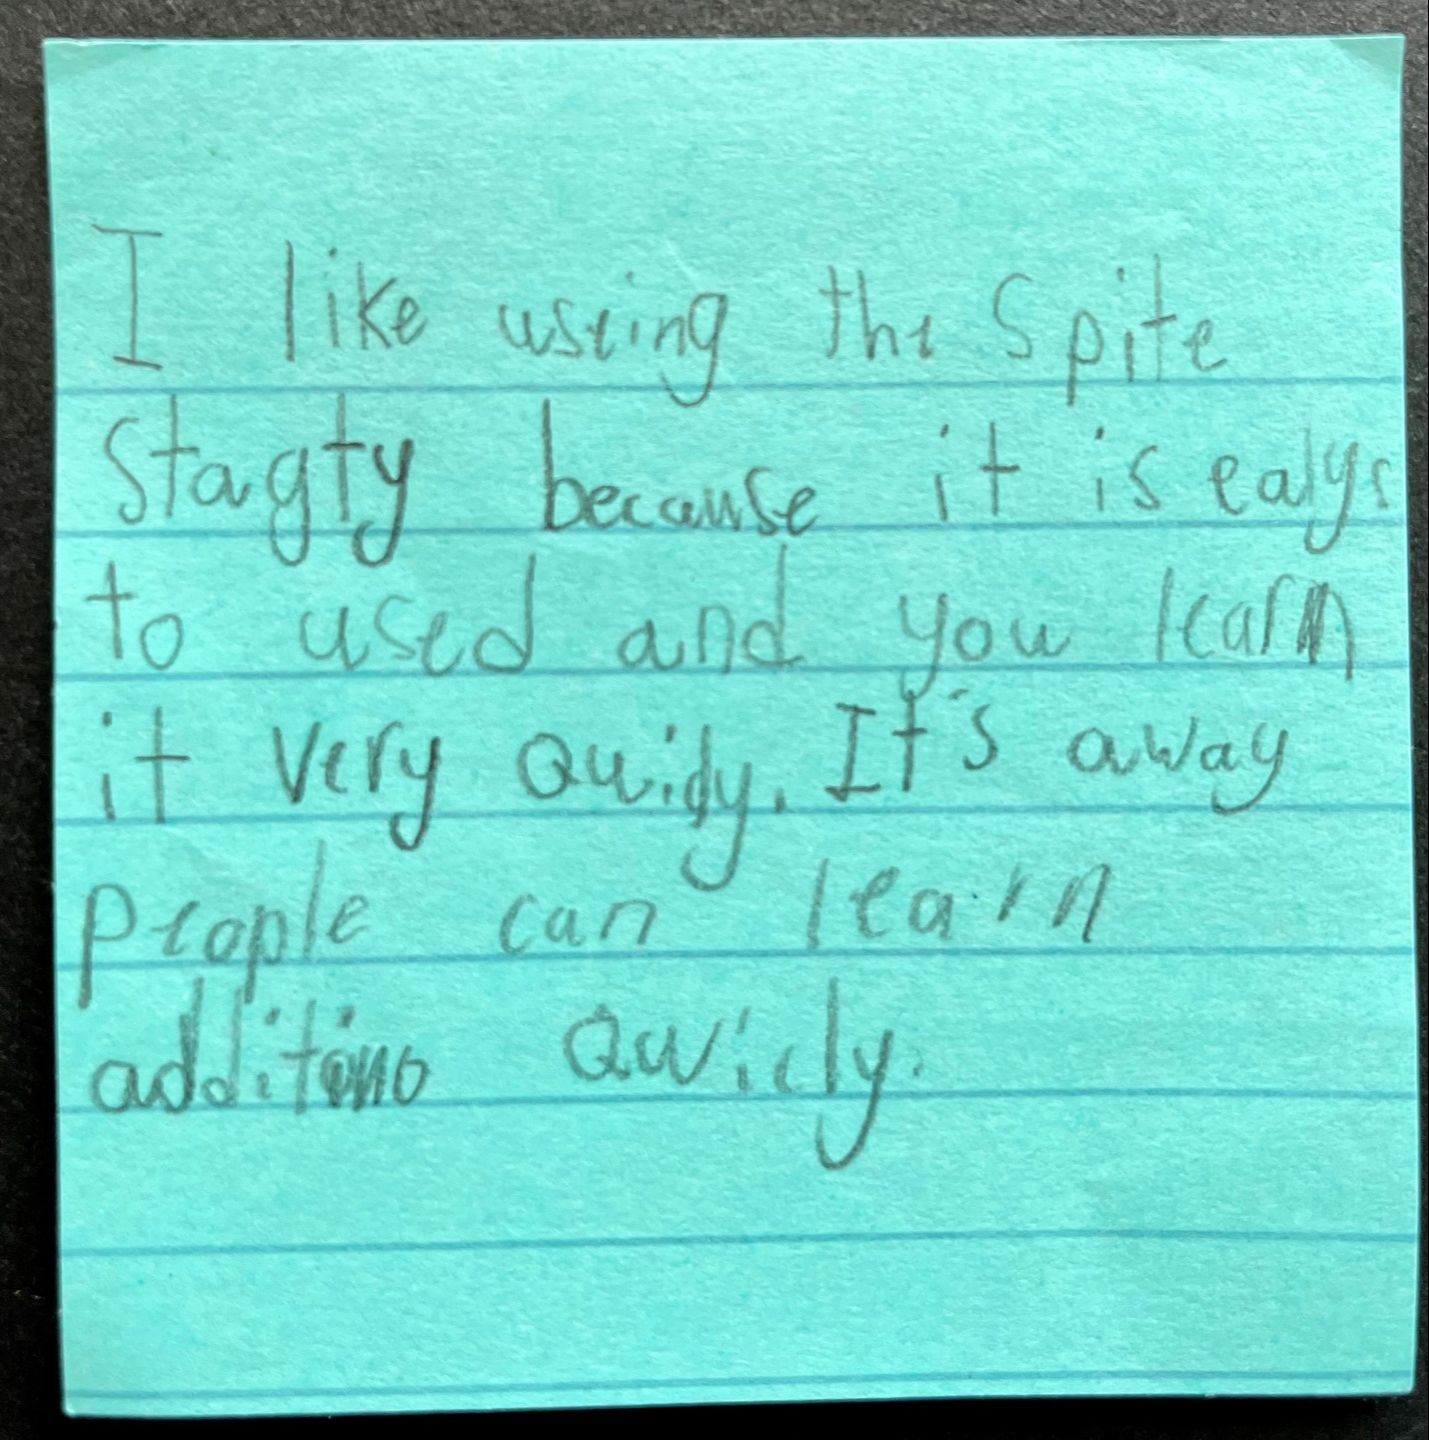 I like useing the Spite
Stagty because it is ealys
to used and you learn
it very Quicly. It's away
people can learn
additino Quicly.